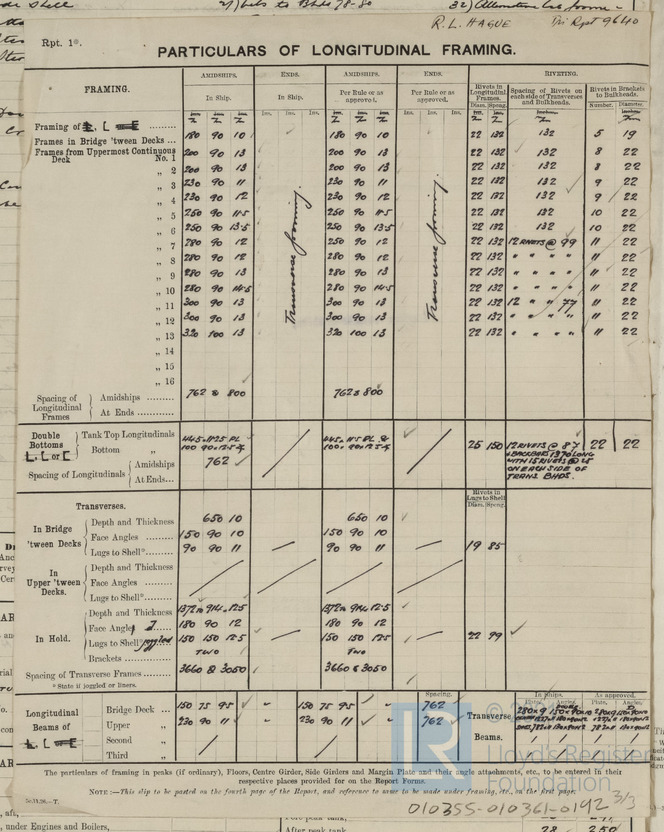 R.L. HAGUE
Rpt. 1*.
PARTICULARS OF LONGITUDINAL FRAMING.
FRAMING. AMIDSHIPS. ENDS. AMIDSHIPS. ENDS. RIVETING.
In Ship. In Ship. Per Rule or as approved. Per Rule or as approved. Rivets in Longitudinal Frames. Spacing of Rivets on each side of Transverses and Bulkheads. Rivets in Brackets to Bulkheads.
Diam. Spcng. Number. Diameter.
Framing of L, L or E
Frames in Bridge 'tween Decks ... 180 90 10 180 90 10 22 132 132 5 19
Frames from Uppermost Continuous Deck No. 1 200 90 13 200 90 13 22 132 132 8 22
„ 2 200 90 13 200 90 13 22 132 132 8 22
„ 3 230 90 11 230 90 11 22 132 132 9 22
„ 4 230 90 12 230 90 12 22 132 132 9 22
„ 5 250 90 11.5 250 90 11.5 22 132 132 10 22
„ 6 250 90 13.5 250 90 13.5 22 132 132 10 22
„ 7 280 90 12 250 90 12 22 132 12 RIVETS @ 99 11 22
„ 8 280 90 12 280 90 12 22 132 " " " " 11 22
„ 9 280 90 13 280 90 13 22 132 " " " " 11 22
„ 10 280 90 14.5 280 90 14.5 22 132 " " " " 11 22
„ 11 300 90 13 300 90 13 22 132 12 " " 77 11 22
„ 12 300 90 13 300 90 13 22 132 " " " " 11 22
„ 13 320 100 13 320 100 13 22 132 " " " " 11 22
„ 14
„ 15
„ 16
Transverse framing. Transverse framing.
Spacing of Longitudinal Frames Amidships 762 & 800 762 & 800
At Ends
Double Bottoms L, L or E Tank Top Longitudinals 25 150 12 RIVETS @ 87 22 22
Bottom „
Spacing of Longitudinals Amidships 762
At Ends
WITH 15 RIVETS @
ON EACH SIDE OF
TRANS. BHDS.
Transverses. Rivets in Lugs to Shell
Diam. Spcng.
In Bridge 'tween Decks Depth and Thickness 650 10 650 10
Face Angles 150 90 10 150 90 10
Lugs to Shell* 90 90 11 90 90 11 19 85
In Upper 'tween Decks. Depth and Thickness
Face Angles
Lugs to Shell*
In Hold. Depth and Thickness
Face Angles 180 90 12 180 90 12
Lugs to Shell* joggled 150 150 12.5 150 150 12.5 22 99
Brackets TWO TWO
Spacing of Transverse Frames 3660 & 3050 3660 & 3050
* State if joggled or liners.
Longitudinal Beams of L, L or E Bridge Deck 150 75 9.5 " 150 75 9.5 " Spacing. 762 Transverse Beams. In Ships. As approved.
Plate. Angles. Plate. Angles.
Upper „ 230 90 11 " 230 90 11 " 762
Second „
Third „
The particulars of framing in peaks (if ordinary), Floors, Centre Girder, Side Girders and Margin Plate and their angle attachments, etc., to be entered in their
respective places provided for on the Report Forms.
NOTE :—This slip to be pasted on the fourth page of the Report, and reference to same to be made under framing, etc., on the first page.
Lloyd's Register
Foundation
010355-010361-0192 3/3
under Engines and Boilers,
After peak tank